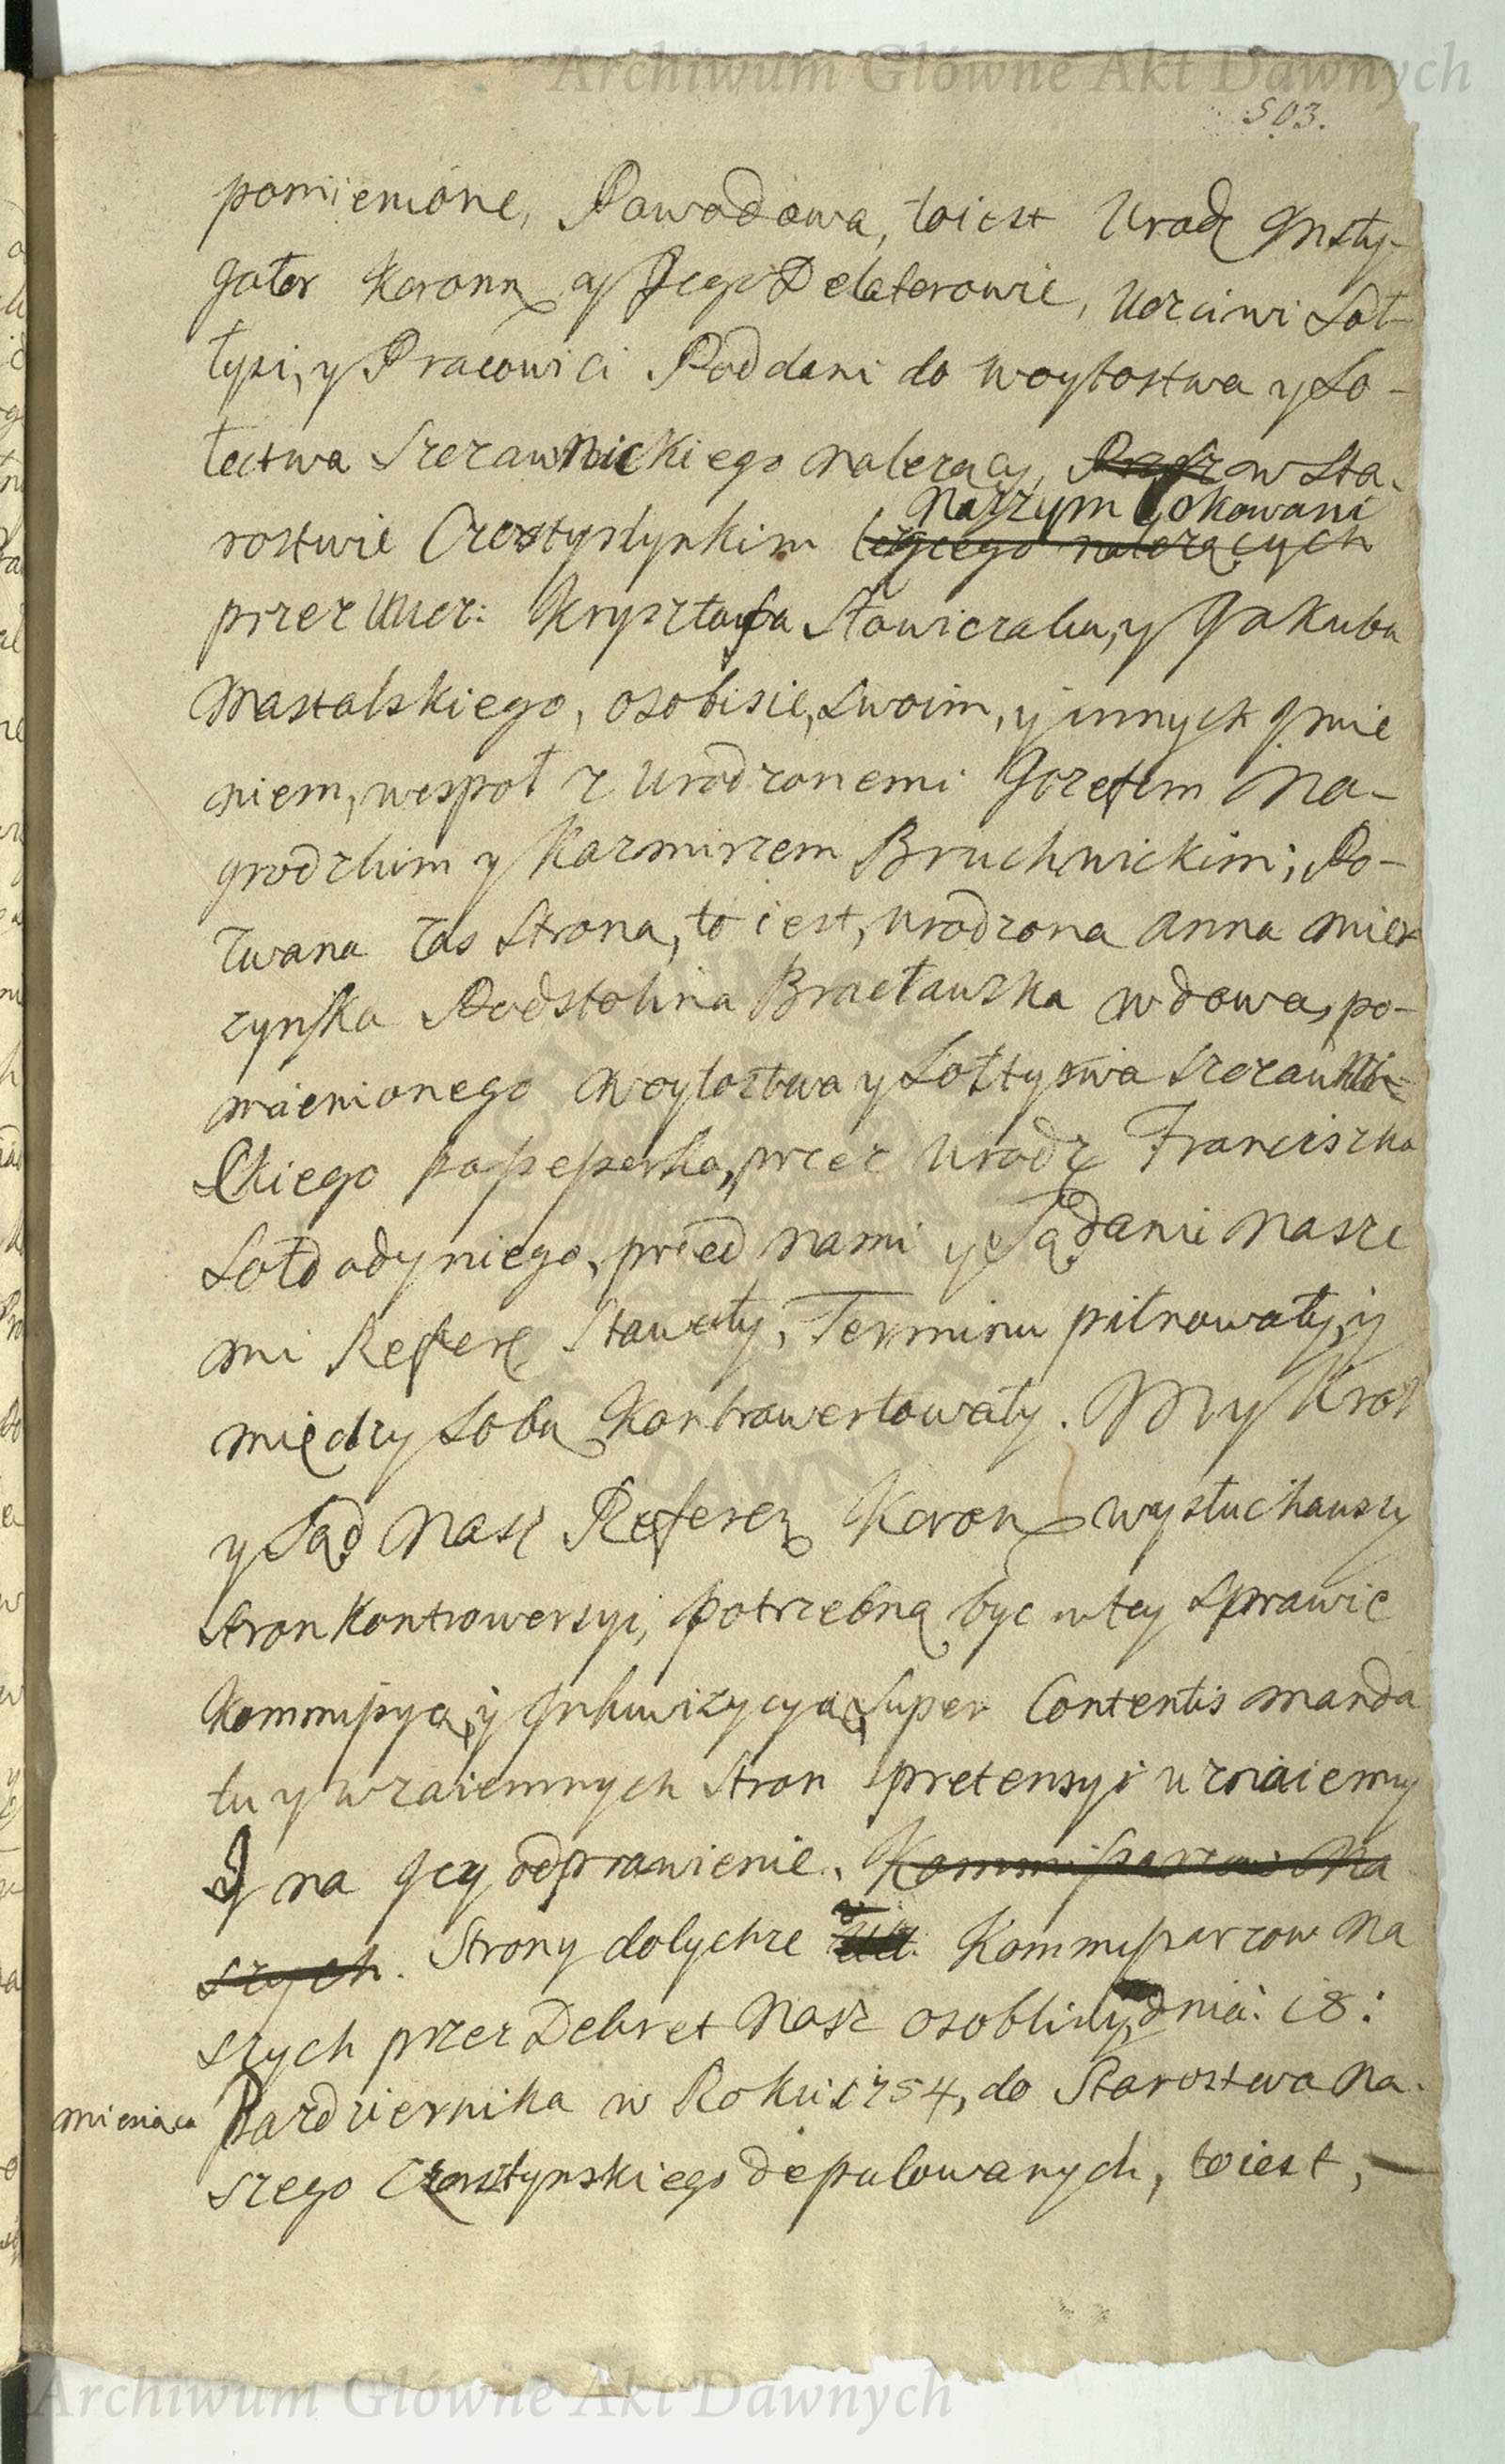 Archiwum Główne Akt Dawnych
503.
pomienione, Powodowa, toiest Urodz Insty-
gator Koronn y Jego Delatorowie, Uczciwi Soł-
tysi, y Pracowici Poddani do woytostwa y So-
łectwa Szczawnickiego nalezący, w Sta-
naszym lokowani
rostwie Czorsztynskim leżącego nalezących
przez Ucz: Krysztofa Słowiczaka, y Jakuba
Mastalskiego, osobisie, swoim, y innych Jmie
niem, wespoł z Urodzonemi Jozefem Na-
grodzkim y Kazmirzem Bruchnickim; Po-
zwana zas Strona, to iest, Urodzona Anna Mier
zynska Podstolina Bracławska wdowa, po-
mienionego woytostwa y Sołtystwa Szczawni-
ckiego possessorka, przez Urodz Franciszka
Sołdadyniego, przed nami y Sądami Nasze
mi Referen Stawały, Terminu pilnowały, y
między sobą Kontrowertowały. My Krol
y Sąd Nasz Referen Koronn wysłuchawszy
stron Kontrowersyi, potrzebną byc w tey sprawie
Kommissyą, y Inkwizycyą, super Contentis manda
tu y wzaiemnych stron pretensyi uznaiemy
Y na Jey odprawienie. Kommissarzow Na
szych. Strony dotychze Kommissarzow Na
szych przez Dekret Nasz osobliwy, dnia: 18:
miesiąca Pazdziernika w Roku 1754, do Starostwa Na-
szego Czorsztynskiego deputowanych, toiest,
Archiwum Główne Akt Dawnych